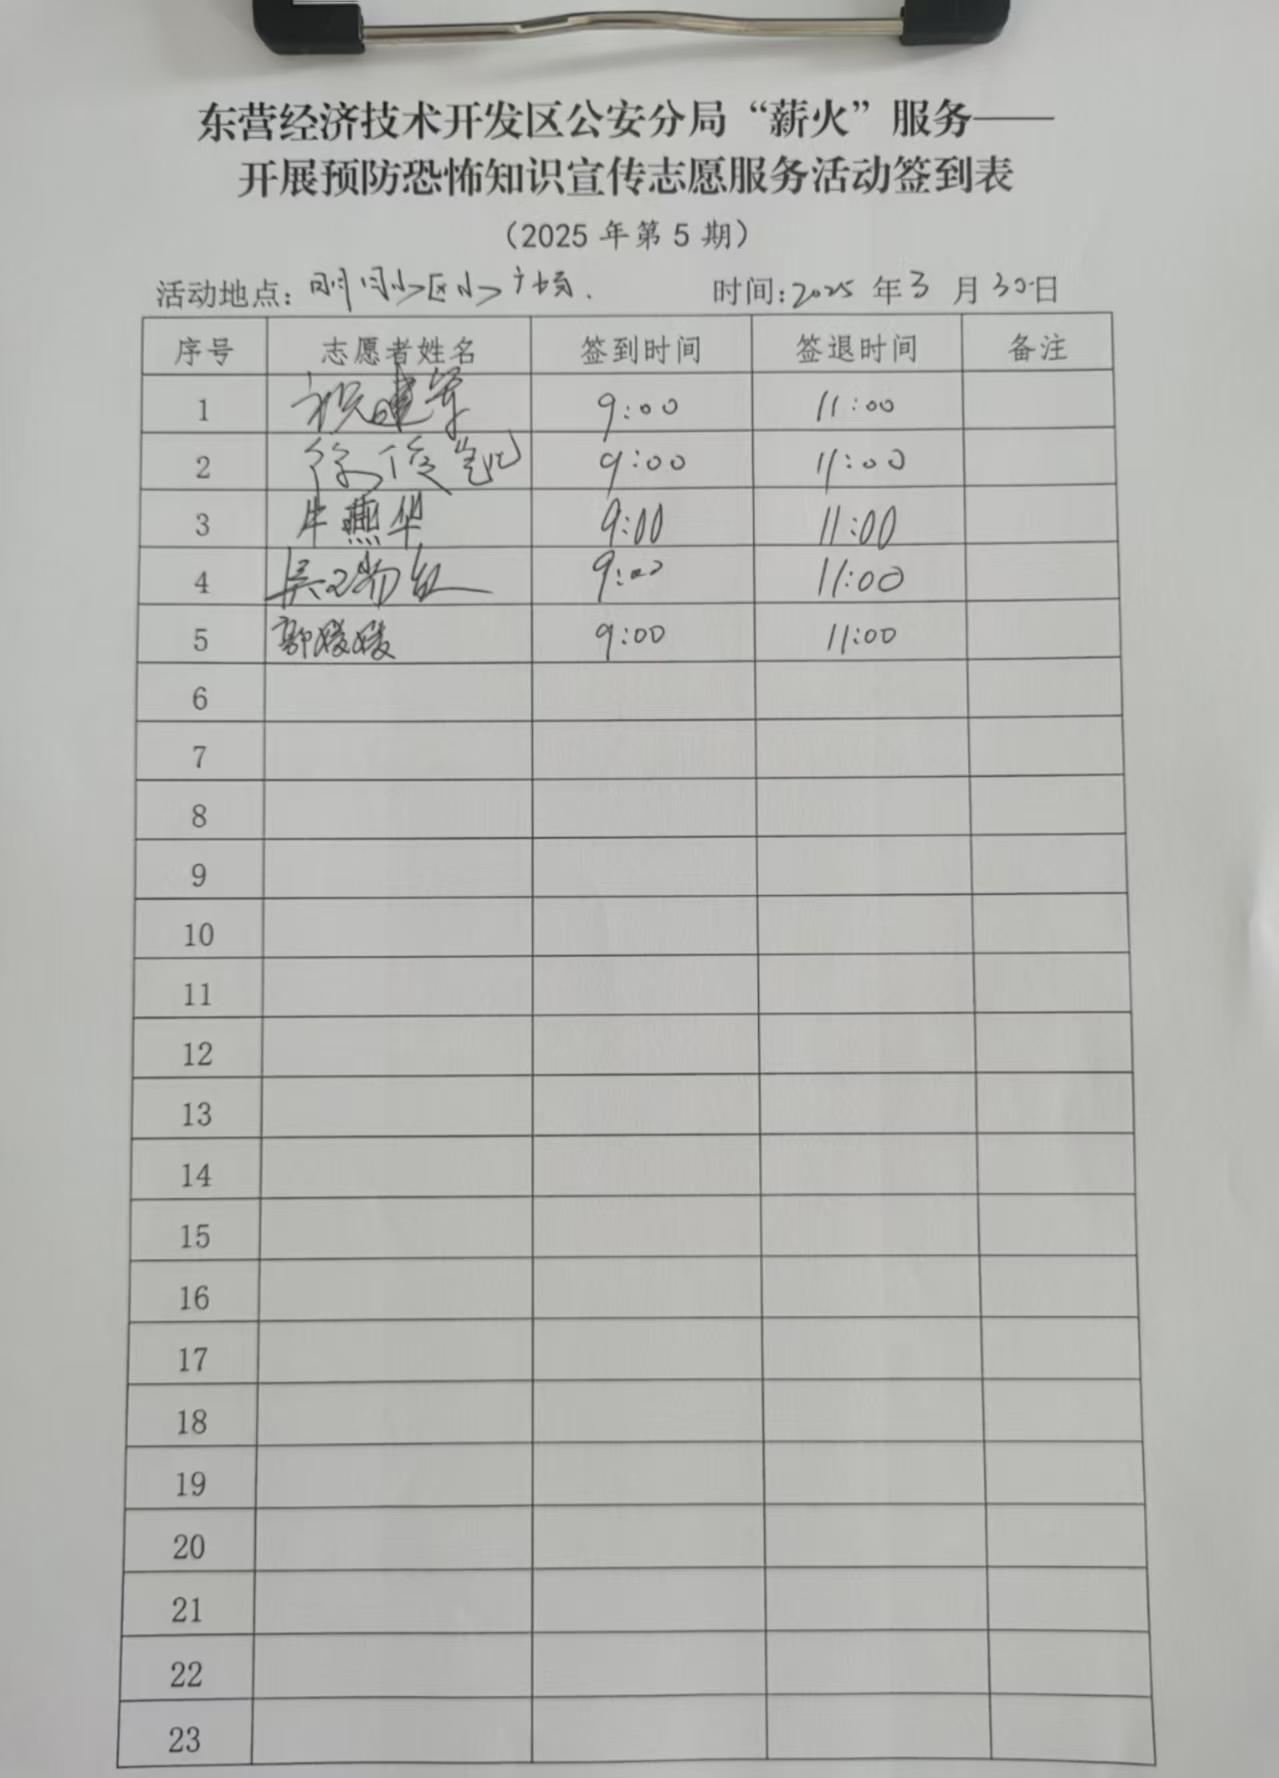 东营经济技术开发区公安分局“薪火”服务——
开展预防恐怖知识宣传志愿服务活动签到表
（2025 年第 5 期）
活动地点：明月小区小广场. 时间：2025 年 3 月 30 日
序号 志愿者姓名 签到时间 签退时间 备注
1 祝建军 9:00 11:00
2 徐俊凯 9:00 11:00
3 牛燕华 9:00 11:00
4 吴 9:00 11:00
5 郭媛媛 9:00 11:00
6
7
8
9
10
11
12
13
14
15
16
17
18
19
20
21
22
23